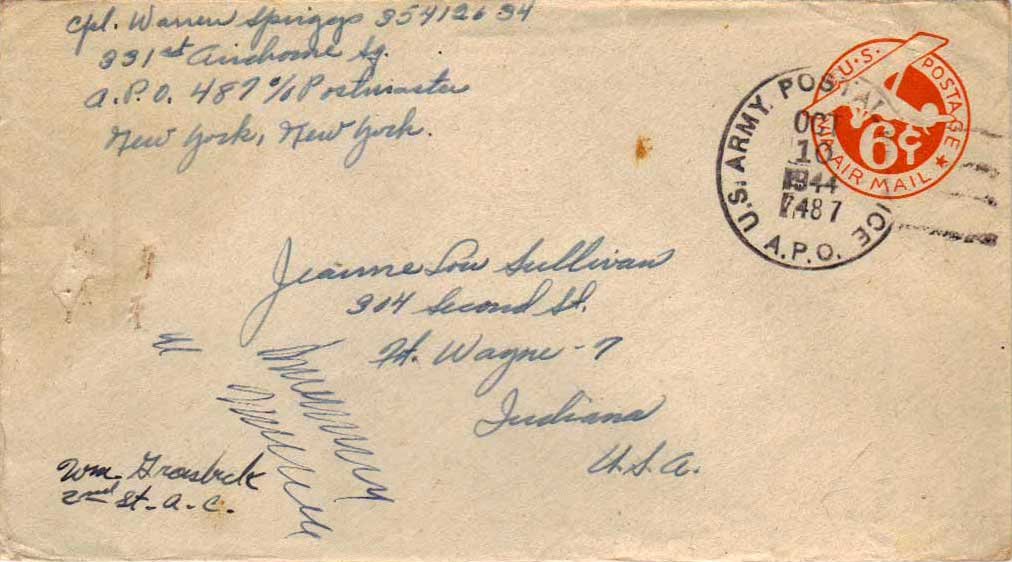 Cpl. Warren Spriggs 35412634
331st Airborne Sq.
A.P.O. 487 c/o Postmaster
New York, New York.
U.S. POSTAGE
6¢
VIA AIR MAIL
U.S. ARMY POSTAL SERVICE
OCT
10
1944
487
A.P.O.
Jeanne Lou Sullivan
304 Second St.
Ft. Wayne - 7
Indiana
U.S.A.
Wm.
2nd Lt. A.C.